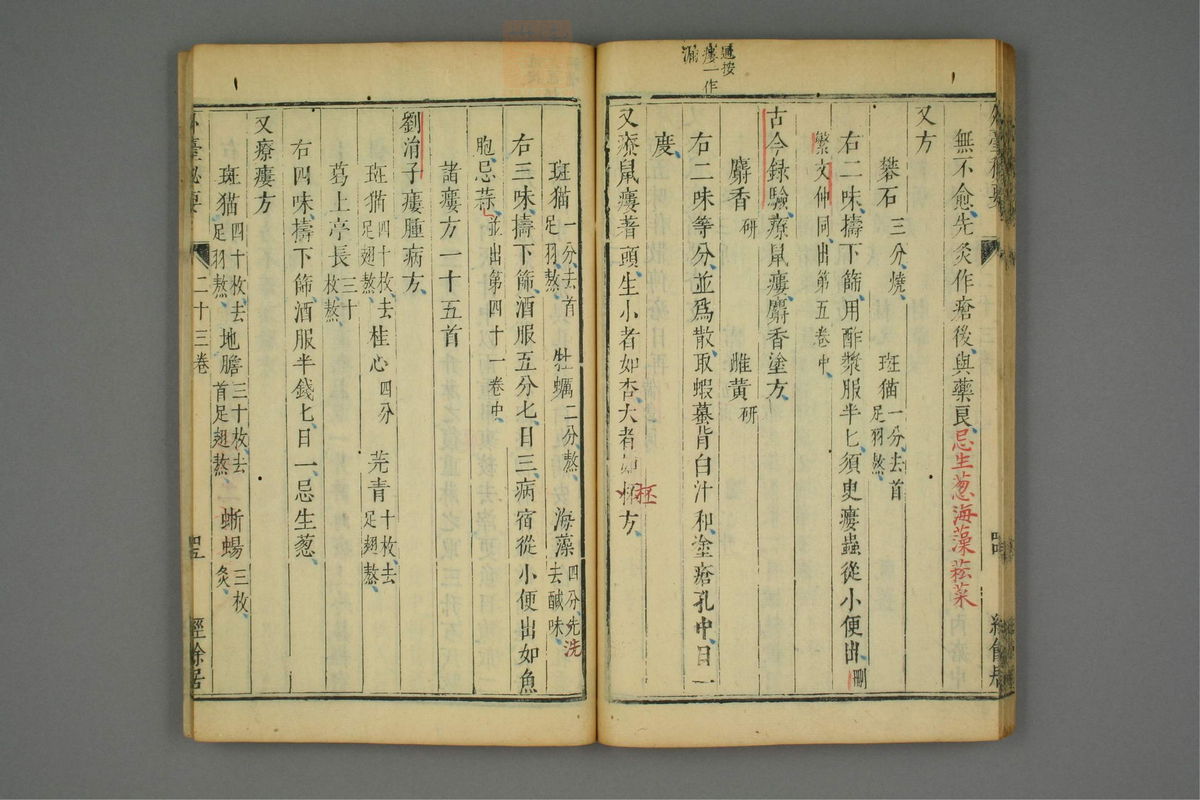 無不愈先灸作瘡後與藥良忌生葱海藻菘菜
又方
礬石三分燒 斑猫一分去首足羽熬
右二味擣下篩用酢漿服半匕須臾瘻蟲從小便出刪
繁文仲同出第五卷中
古今録驗療鼠瘻麝香塗方
麝香研 雌黄研
右二味等分並爲散取蝦蟇背白汁和塗瘡孔中日一
度
又療鼠瘻著頭生小者如杏大者如杯方
通按
瘻一作
漏
斑猫一分去首足羽熬 牡蠣二分熬 海藻四分先洗去醎味
右三味擣下篩酒服五分匕日三病宿從小便出如魚
胞忌蒜並出第四十一卷中
諸瘻方一十五首
劉涓子瘻腫病方
斑猫四十枚去足翅熬 桂心四分 芫青十枚去足翅熬
葛上亭長三十枚熬
右四味擣下篩酒服半錢匕日一忌生葱
又療瘻方
斑猫四十枚去足羽熬 地膽三十枚去首足翅熬 蜥蜴三枚灸
外臺秘要
二十三卷
經餘居